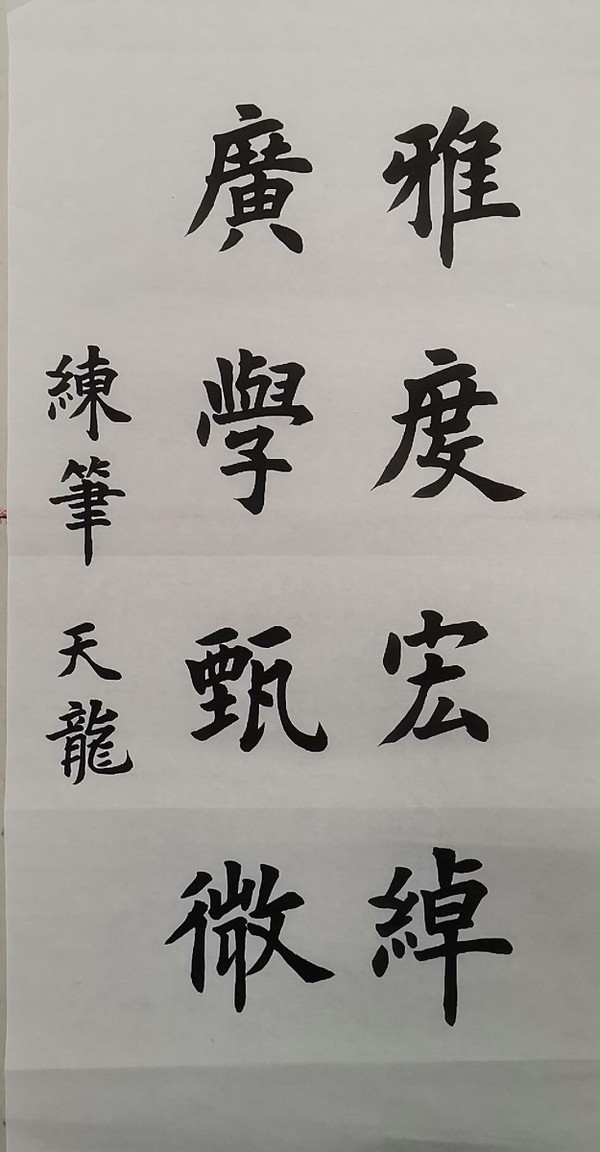 雅度宏綽
廣學甄微
練筆 天龍